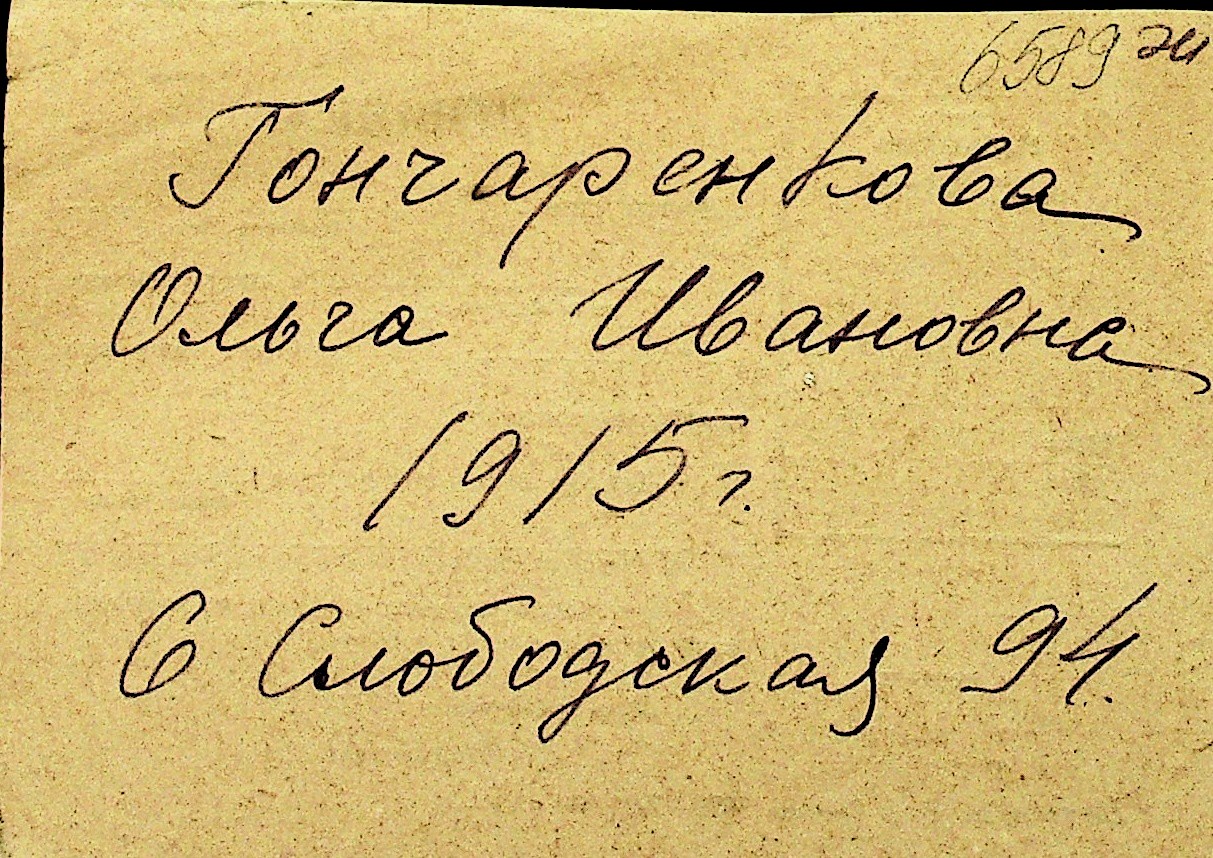 6589 ж
Гончаренкова
Ольга Ивановна
1915 г.
6 Слободская 94.